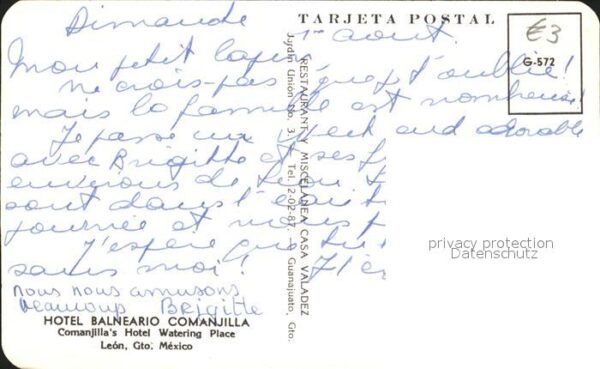 TARJETA POSTAL
Dimanche 1er aout.
€3
G-572
Mon petit lapin
Ne crois-pas que je t'oublie!
mais la famille est nombreuse!
Je passe un week end adorable
avec Brigitte et ses
environs de León
sont dans l'eau
journée et nous
J'espère que tu
sans moi!
nous nous amusons
beaucoup Brigitte
RESTAURANT Y MISCELANEA CASA VALADEZ
Jardín Unión No. 3. - Tel. 2-02-87. - Guanajuato, Gto.
privacy protection
Datenschutz
HOTEL BALNEARIO COMANJILLA
Comanjilla's Hotel Watering Place
León, Gto. México